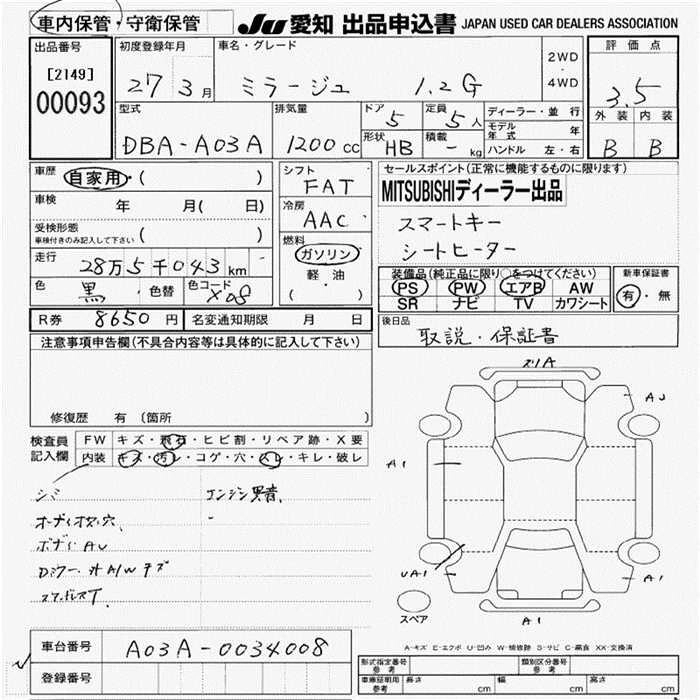 車内保管・守衛保管
JU 愛知 出品申込書 JAPAN USED CAR DEALERS ASSOCIATION
出品番号
[2149]
00093
初度登録年月
27 3月
車名・グレード
ミラージュ 1.2G
2WD
・
4WD
評価点
3.5
外装 内装
B B
型式
DBA-A03A
排気量
1200 cc
ドア
5
定員
5人
形状
HB
積載
- kg
ディーラー・並行
モデル年式 年
ハンドル 左・右
車歴
自家用・( )
車検
年 月( 日)
受検形態
車検付きのみ記入して下さい ( )
走行
28万5千043km
色
黒
色替
色コード
X08
シフト
FAT
冷房
AAC
燃料
ガソリン
軽・油
( )
セールスポイント(正常に機能するものに限ります)
MITSUBISHIディーラー出品
スマートキー
シートヒーター
装備品(純正品に限り○をつけてください)
PS PW エアB AW
SR ナビ TV カワシート
新車保証書
有・無
R券 8650円 名変通知期限 月 日
後日品
取説・保証書
注意事項申告欄(不具合内容等は具体的に記入して下さい)
修復歴 有(箇所 )
検査員
記入欄
FW キズ・飛石・ヒビ割・リペア跡・X要
内装 キズ・汚レ・コゲ・穴・ハレ・キレ・破レ
シミ
エンジン異音、
オーディオ欠穴、
ボディAU
スリA
AU
A1
UA1
A1
A1
スペア
A-キズ E-エクボ U-凹み W-補修跡 S-サビ C-腐食 XX-交換済
車台番号
A03A-0034008
登録番号
形式指定番号
参考
類別区分番号
参考
車庫証明用
参考
長さ cm
幅 cm
高さ cm